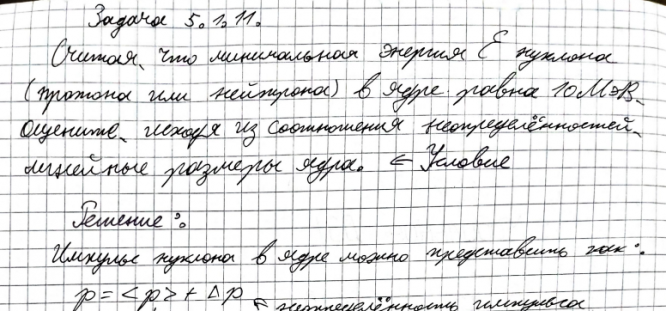 Задача 5.1.11.
Считая, что минимальная энергия E нуклона
(протона или нейтрона) в ядре равна 10 МэВ.
Оцените, исходя из соотношения неопределённостей,
линейные размеры ядра. ← Условие
Решение:
Импульс нуклона в ядре можно представить как:
p = <p> + Δp ← неопределённость импульса